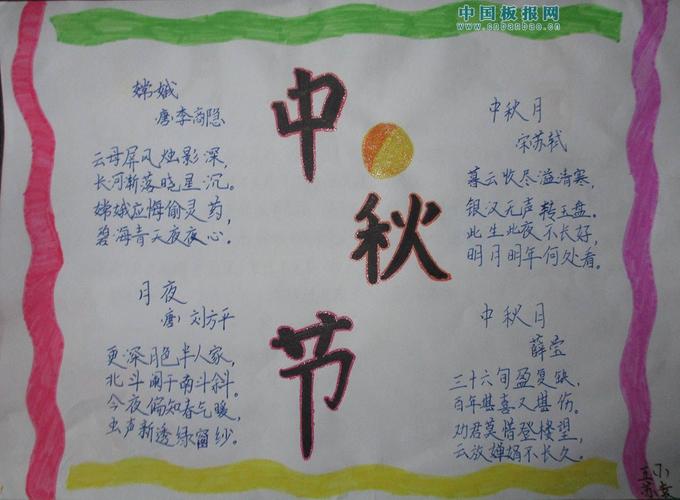 中国板报网
www.cnbanbao.cn
中秋节
嫦娥
唐 李商隐
云母屏风烛影深,
长河渐落晓星沉。
嫦娥应悔偷灵药,
碧海青天夜夜心。
月夜
唐 刘方平
更深月色半人家,
北斗阑干南斗斜。
今夜偏知春气暖,
虫声新透绿窗纱。
中秋月
宋苏轼
暮云收尽溢清寒,
银汉无声转玉盘。
此生此夜不长好,
明月明年何处看。
中秋月
薛莹
三十六旬盈复缺,
百年堪喜又堪伤。
劝君莫惜登楼望,
云放婵娟不长久。